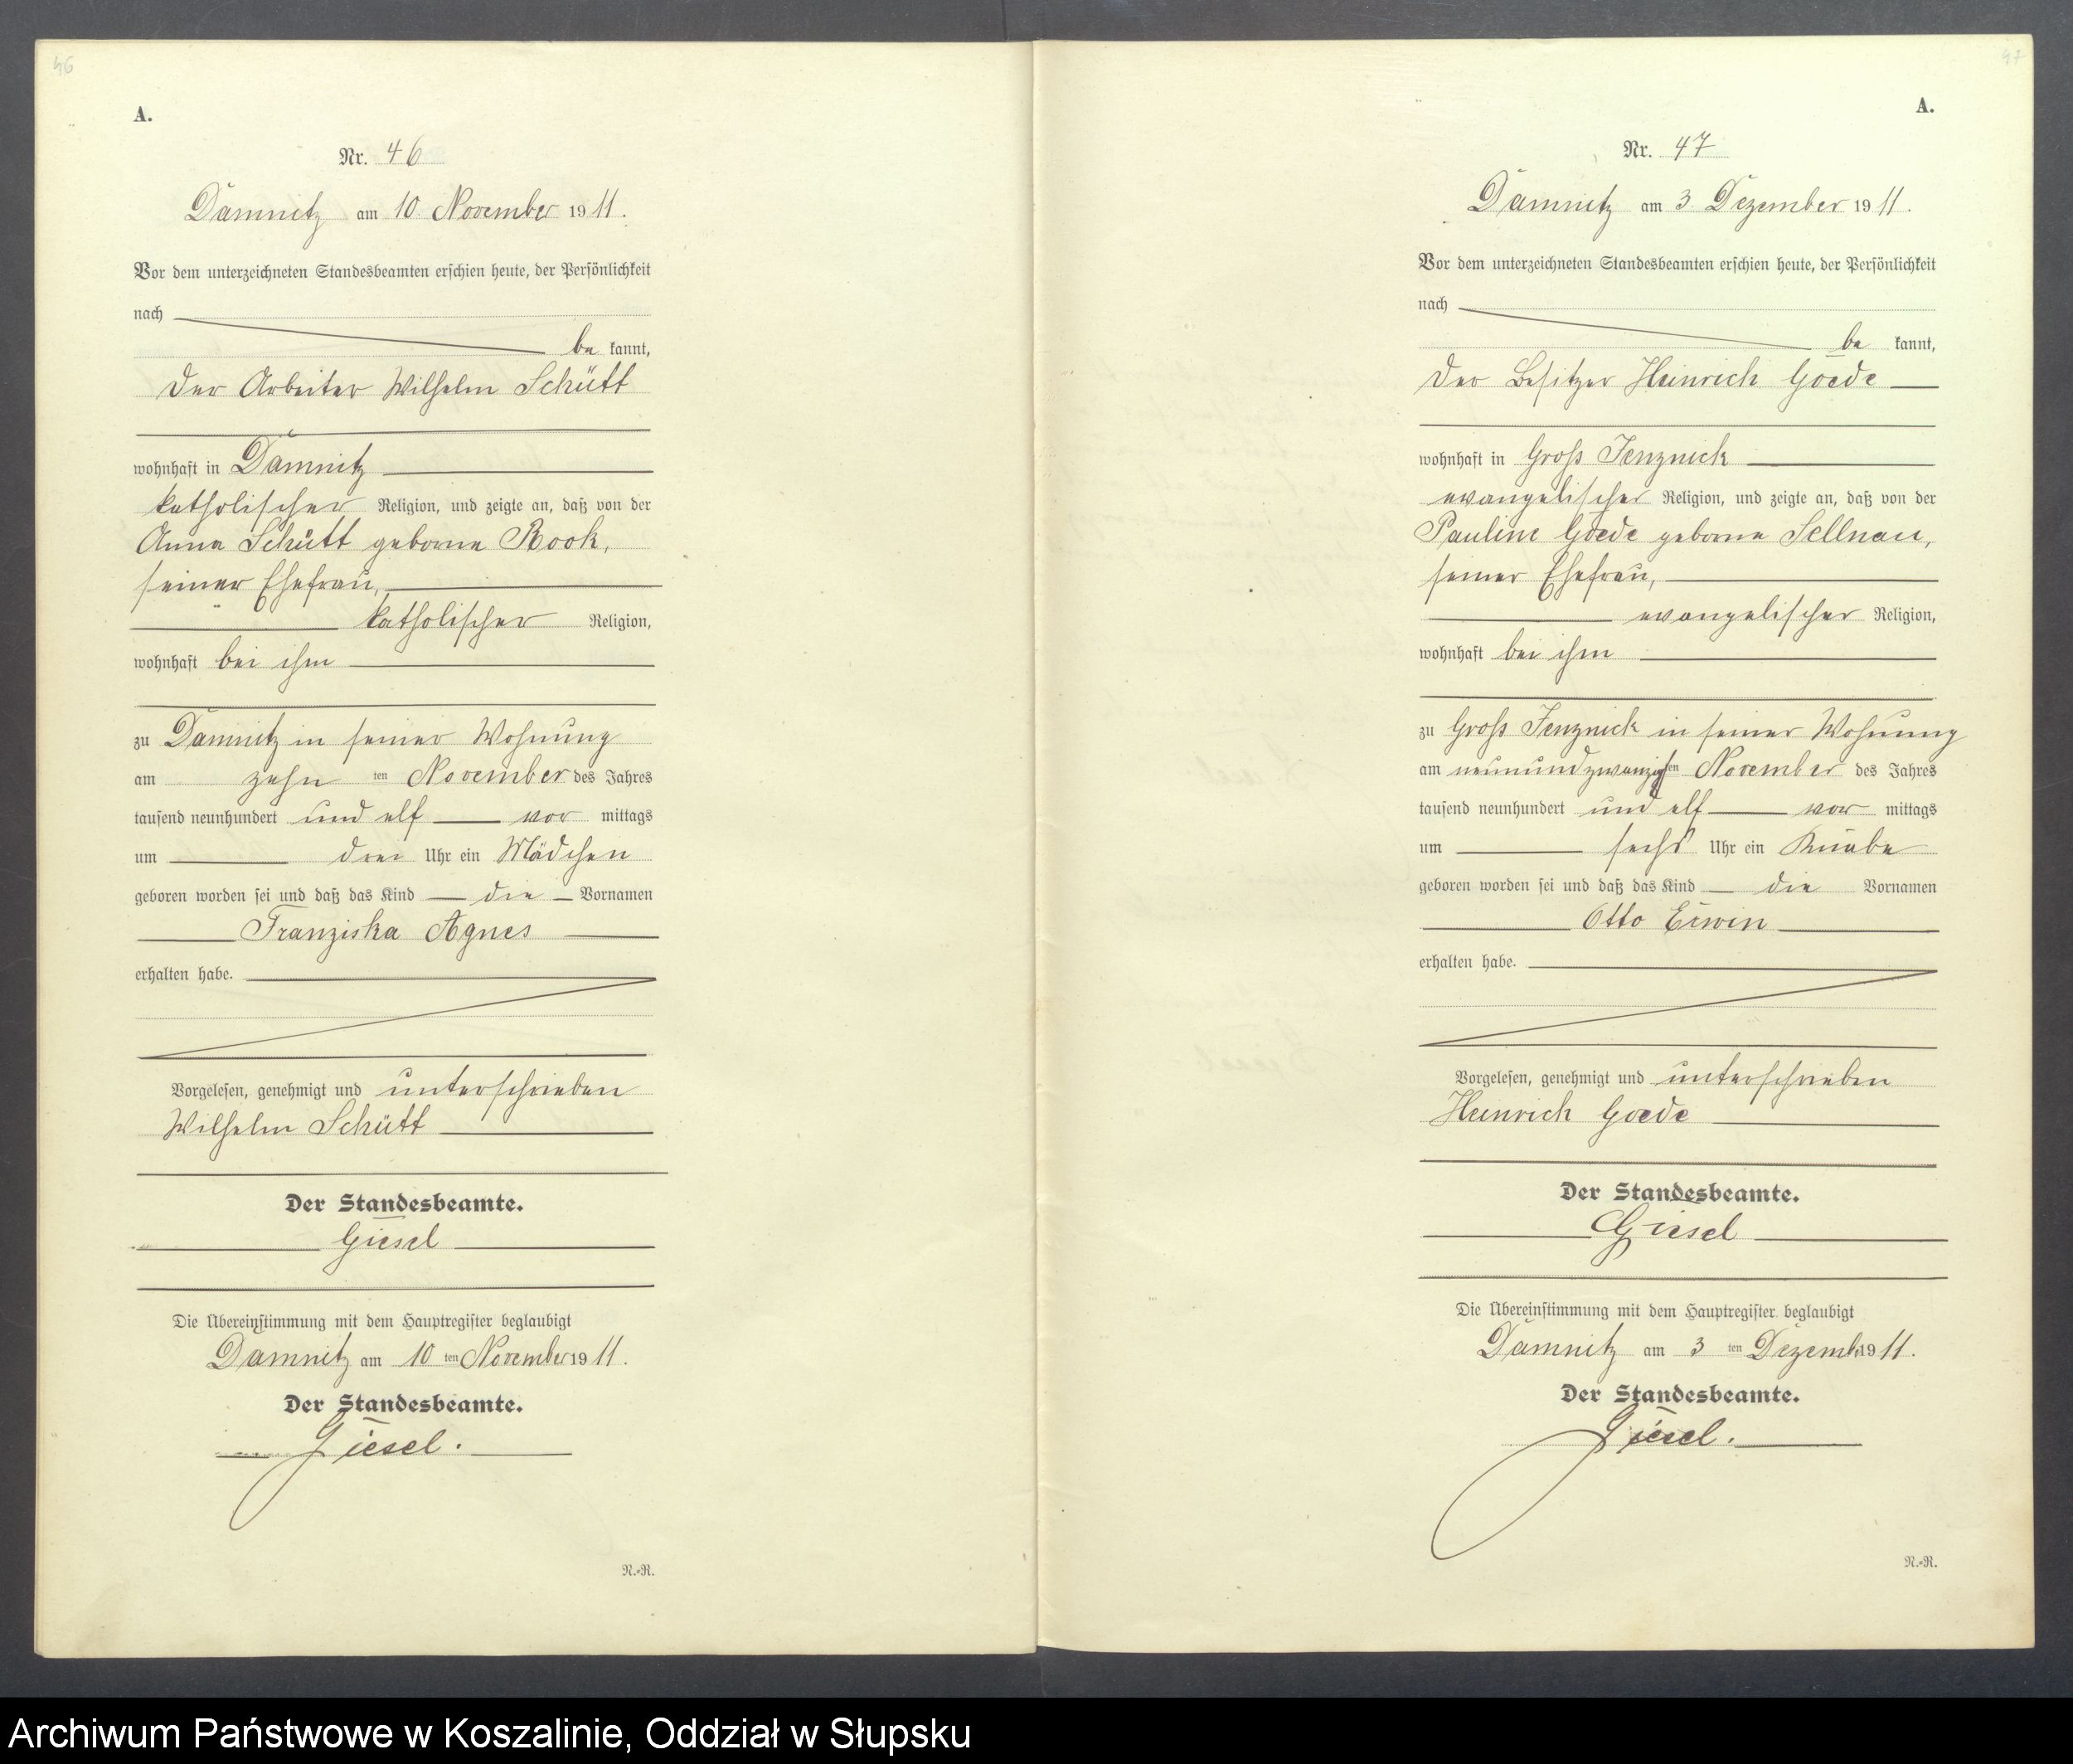 46
A.
Nr. 46
Damnitz am 10 November 1911.
Vor dem unterzeichneten Standesbeamten erschien heute, der Persönlichkeit
nach
be kannt,
der Arbeiter Wilhelm Schütt
wohnhaft in Damnitz
katholischer Religion, und zeigte an, daß von der
Anna Schütt geborne Rook,
seiner Ehefrau,
katholischer Religion,
wohnhaft bei ihm
zu Damnitz in seiner Wohnung
am zehn ten November des Jahres
tausend neunhundert und elf vor mittags
um drei Uhr ein Mädchen
geboren worden sei und daß das Kind die Vornamen
Franziska Agnes
erhalten habe.
Vorgelesen, genehmigt und unterschrieben
Wilhelm Schütt
Der Standesbeamte.
Giesel
Die Übereinstimmung mit dem Hauptregister beglaubigt
Damnitz am 10 ten November 1911.
Der Standesbeamte.
Giesel.
N.-R.
47
A.
Nr. 47
Damnitz am 3 Dezember 1911.
Vor dem unterzeichneten Standesbeamten erschien heute, der Persönlichkeit
nach
be kannt,
der Besitzer Heinrich Goede
wohnhaft in Groß Jenznick
evangelischer Religion, und zeigte an, daß von der
Pauline Goede geborne Sellnau,
seiner Ehefrau,
evangelischer Religion,
wohnhaft bei ihm
zu Groß Jenznick in seiner Wohnung
am neunundzwanzigsten November des Jahres
tausend neunhundert und elf vor mittags
um sechs Uhr ein Knabe
geboren worden sei und daß das Kind die Vornamen
Otto Erwin
erhalten habe.
Vorgelesen, genehmigt und unterschrieben
Heinrich Goede
Der Standesbeamte.
Giesel
Die Übereinstimmung mit dem Hauptregister beglaubigt
Damnitz am 3 ten Dezemb 1911.
Der Standesbeamte.
Giesel.
N.-R.
Archiwum Państwowe w Koszalinie, Oddział w Słupsku